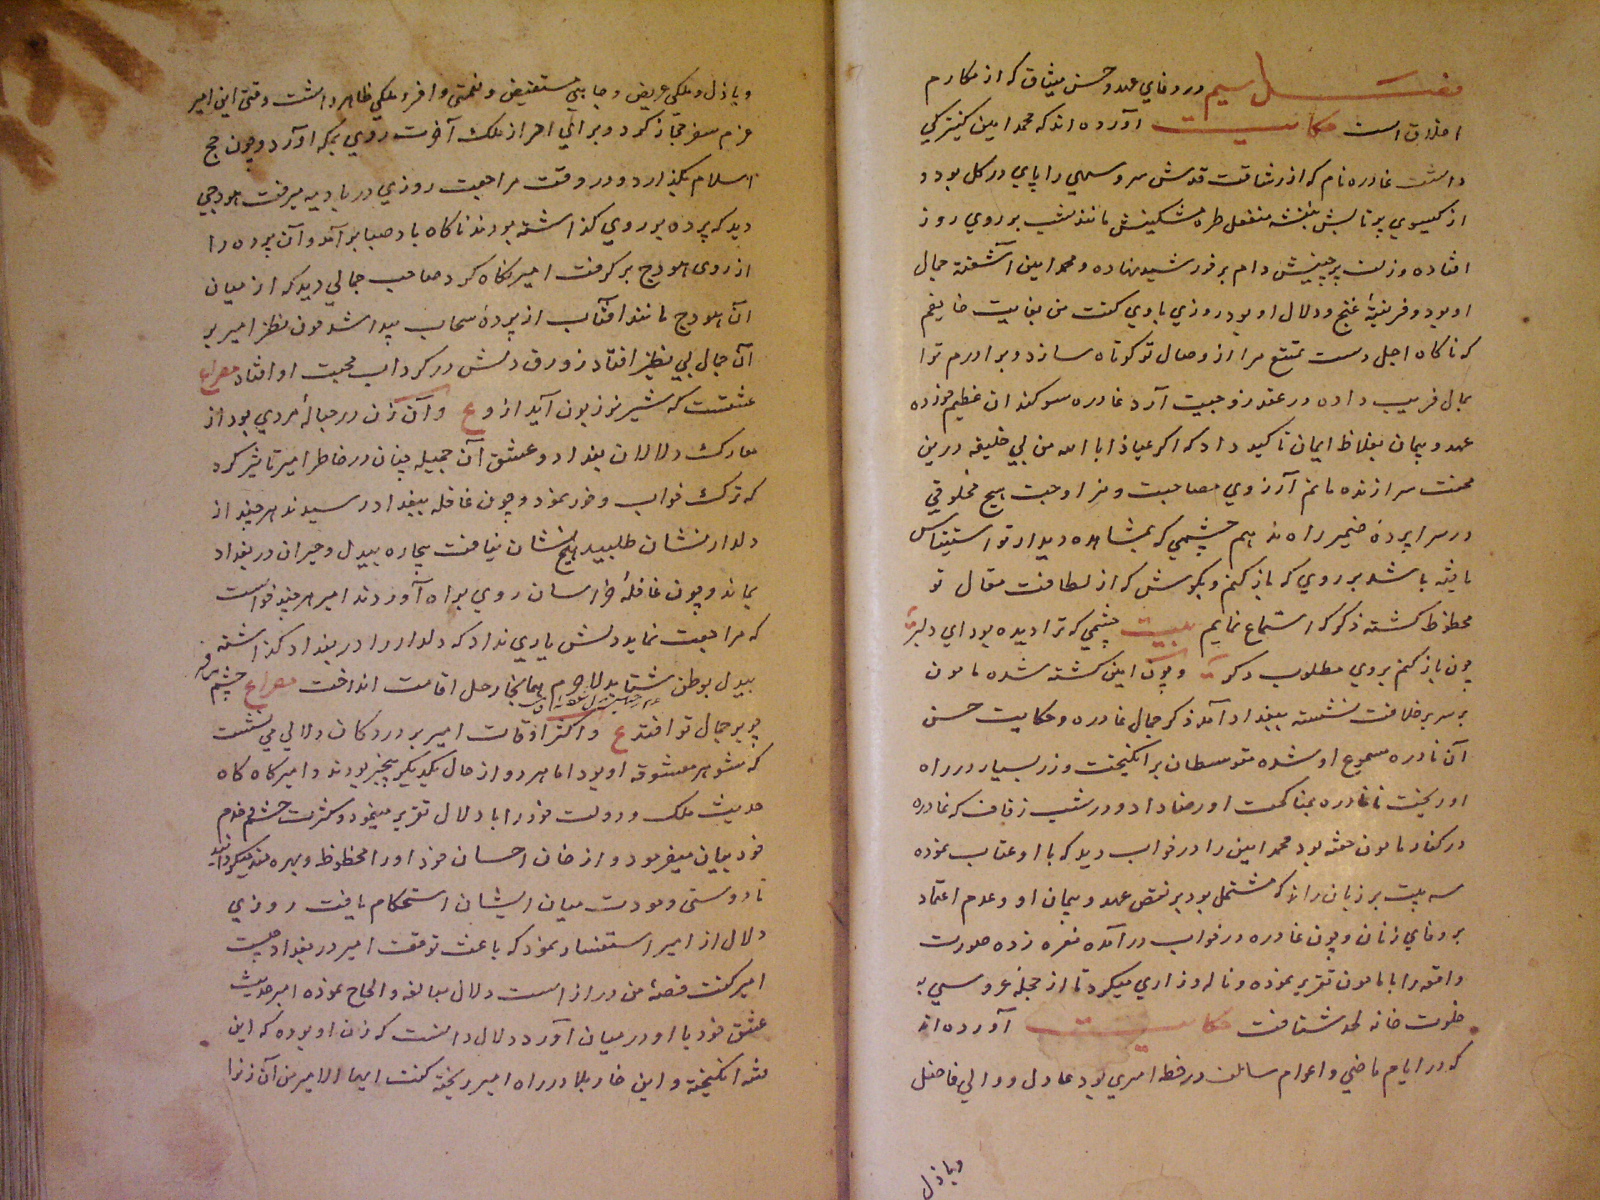 فصل سیم در وفای عهد و حسن میثاق که از مکارم
اخلاق است حکایت آورده اند که محمد امین کنیزکی
داشت غادره نام که از رشاقت قدش سرو سهی را پای در کل بود و
از کیسوی پر تابش بنفشه منفعل طره مشکینش مانند شب بر روی روز
افتاده و زلف پرچینش دام بر خورشید نهاده و محمد امین آشفته جمال
او بود و فریفتهٔ غنج و دلال او بود روزی با وی کفت من بغایت خایفم
که ناکاه اجل دست تمتع مرا از وصال تو کوتاه سازد و برادرم ترا
بمال فریب داده در عقد زوجیت آرد غادره سوکندان عظیم خورده
عهد و پیمان بغلاظ ایمان تاکید داد که اکر عیاذا بالله من بی خلیفه درین
محنت سرا زنده مانم آرزوی مصاحبت و مزاوجت هیچ مخلوقی
در سراپردهٔ ضمیر راه ندهم چشمی که بمشاهده دیدار تو استیناس
یافته باشد بر روی که باز کنم و بکوش که از لطافت مقال تو
محظوظ کشته ذکر که استماع نمایم بیت چشمی که ترا دیده بود ای دلبر
چون باز کنم بروی مطلوب دکر و چون امین کشته شده مامون
بر سریر خلافت نشسته ببغداد آمد ذکر جمال غادره و حکایت حسن
آن نادره مسموع او شده متوسطان برانکیخت و زر بسیار در راه
او ریخت تا غادره بمناکحت او رضا داد و در شب زفاف که غادره
در کنار مامون خفته بود محمد امین را در خواب دید که با او عتاب نموده
سه بیت بر زبان راند که مشتمل بود بر نقض عهد و پیمان او و عدم اعتماد
بر وفای زنان و چون غادره در خواب درآمده نعره زده صورت
واقعه را با مامون تقریر نموده و ناله و زاری میکرد تا از حجلهٔ عروسی به
خلوت خانه لحد شتافت حکایت آورده اند
که در ایام ماضی و اعوام سالف در خطه امیری بود عادل و والی فاضل
و باذل
و باذل و ملکی عریض و جانبی مستفیض و نعمتی وافر و ملکی ظاهر داشت وقتی این امیر
عزم سفر حجاز کرد و برای احراز ملک آخرت روی بمکه آورد و چون حج
اسلام بکذارد و در وقت مراجعت روزی در بادیه میرفت هودجی
دید که پرده بر روی کذاشته بودند ناکاه باد صبا برآمد و آن پرده را
از روی هودج بر کرفت امیر نکاه کرد صاحب جمالی دید که از میان
آن هودج مانند آفتاب از پردهٔ سحاب پیدا شد چون نظر امیر بر
آن جمال بی نظیر افتاد زورق دلش در کرداب محبت او افتاد مصراع
عشقست که شیر نر زبون آید ازو ع و آن زن در حبالهٔ مردی بود از
معارک دلالان بغداد و عشق آن جمیله چنان در خاطر امیر تاثیر کرد
که ترک خواب و خور نمود و چون قافله ببغداد رسیدند هر چند از
دلدار نشان طلبید هیچ نشان نیافت بیچاره بیدل و حیران در بغداد
بماند و چون قافلهٔ خراسان روی براه آوردند امیر هر چند خواست
که مراجعت نماید دلش یاری نداد که دلدار را در بغداد کذاشته
بیدل بوطن شتابد لاجرم همانجا رحل اقامت انداخت مصراع چشم
چو بر جمال تو افتد ع و اکثر اوقات امیر بر در دکان دلالی می نشست
که شوهر معشوقه او بود اما هر دو از حال یکدیکر بیخبر بودند و امیر کاه کاه
حدیث ملک و دولت خود را با دلال تقریر مینمود و کثرت حشم و خدم
خود بیان میفرمود و از خان احسان خود او را محظوظ و بهره مند میکردانید
تا دوستی و مودت میان ایشان استحکام یافت روزی
دلال از امیر استفسار نمود که باعث توقف امیر در بغداد چیست
امیر کفت قصهٔ من دراز است دلال مبالغه و الحاح نموده امیر حدیث
عشق خود با او در میان آورد دلال دانست که زن او بوده که این
فتنه انکیخته و این خار بلا در راه امیر ریخته کفت ایها الامیر من آن زنرا